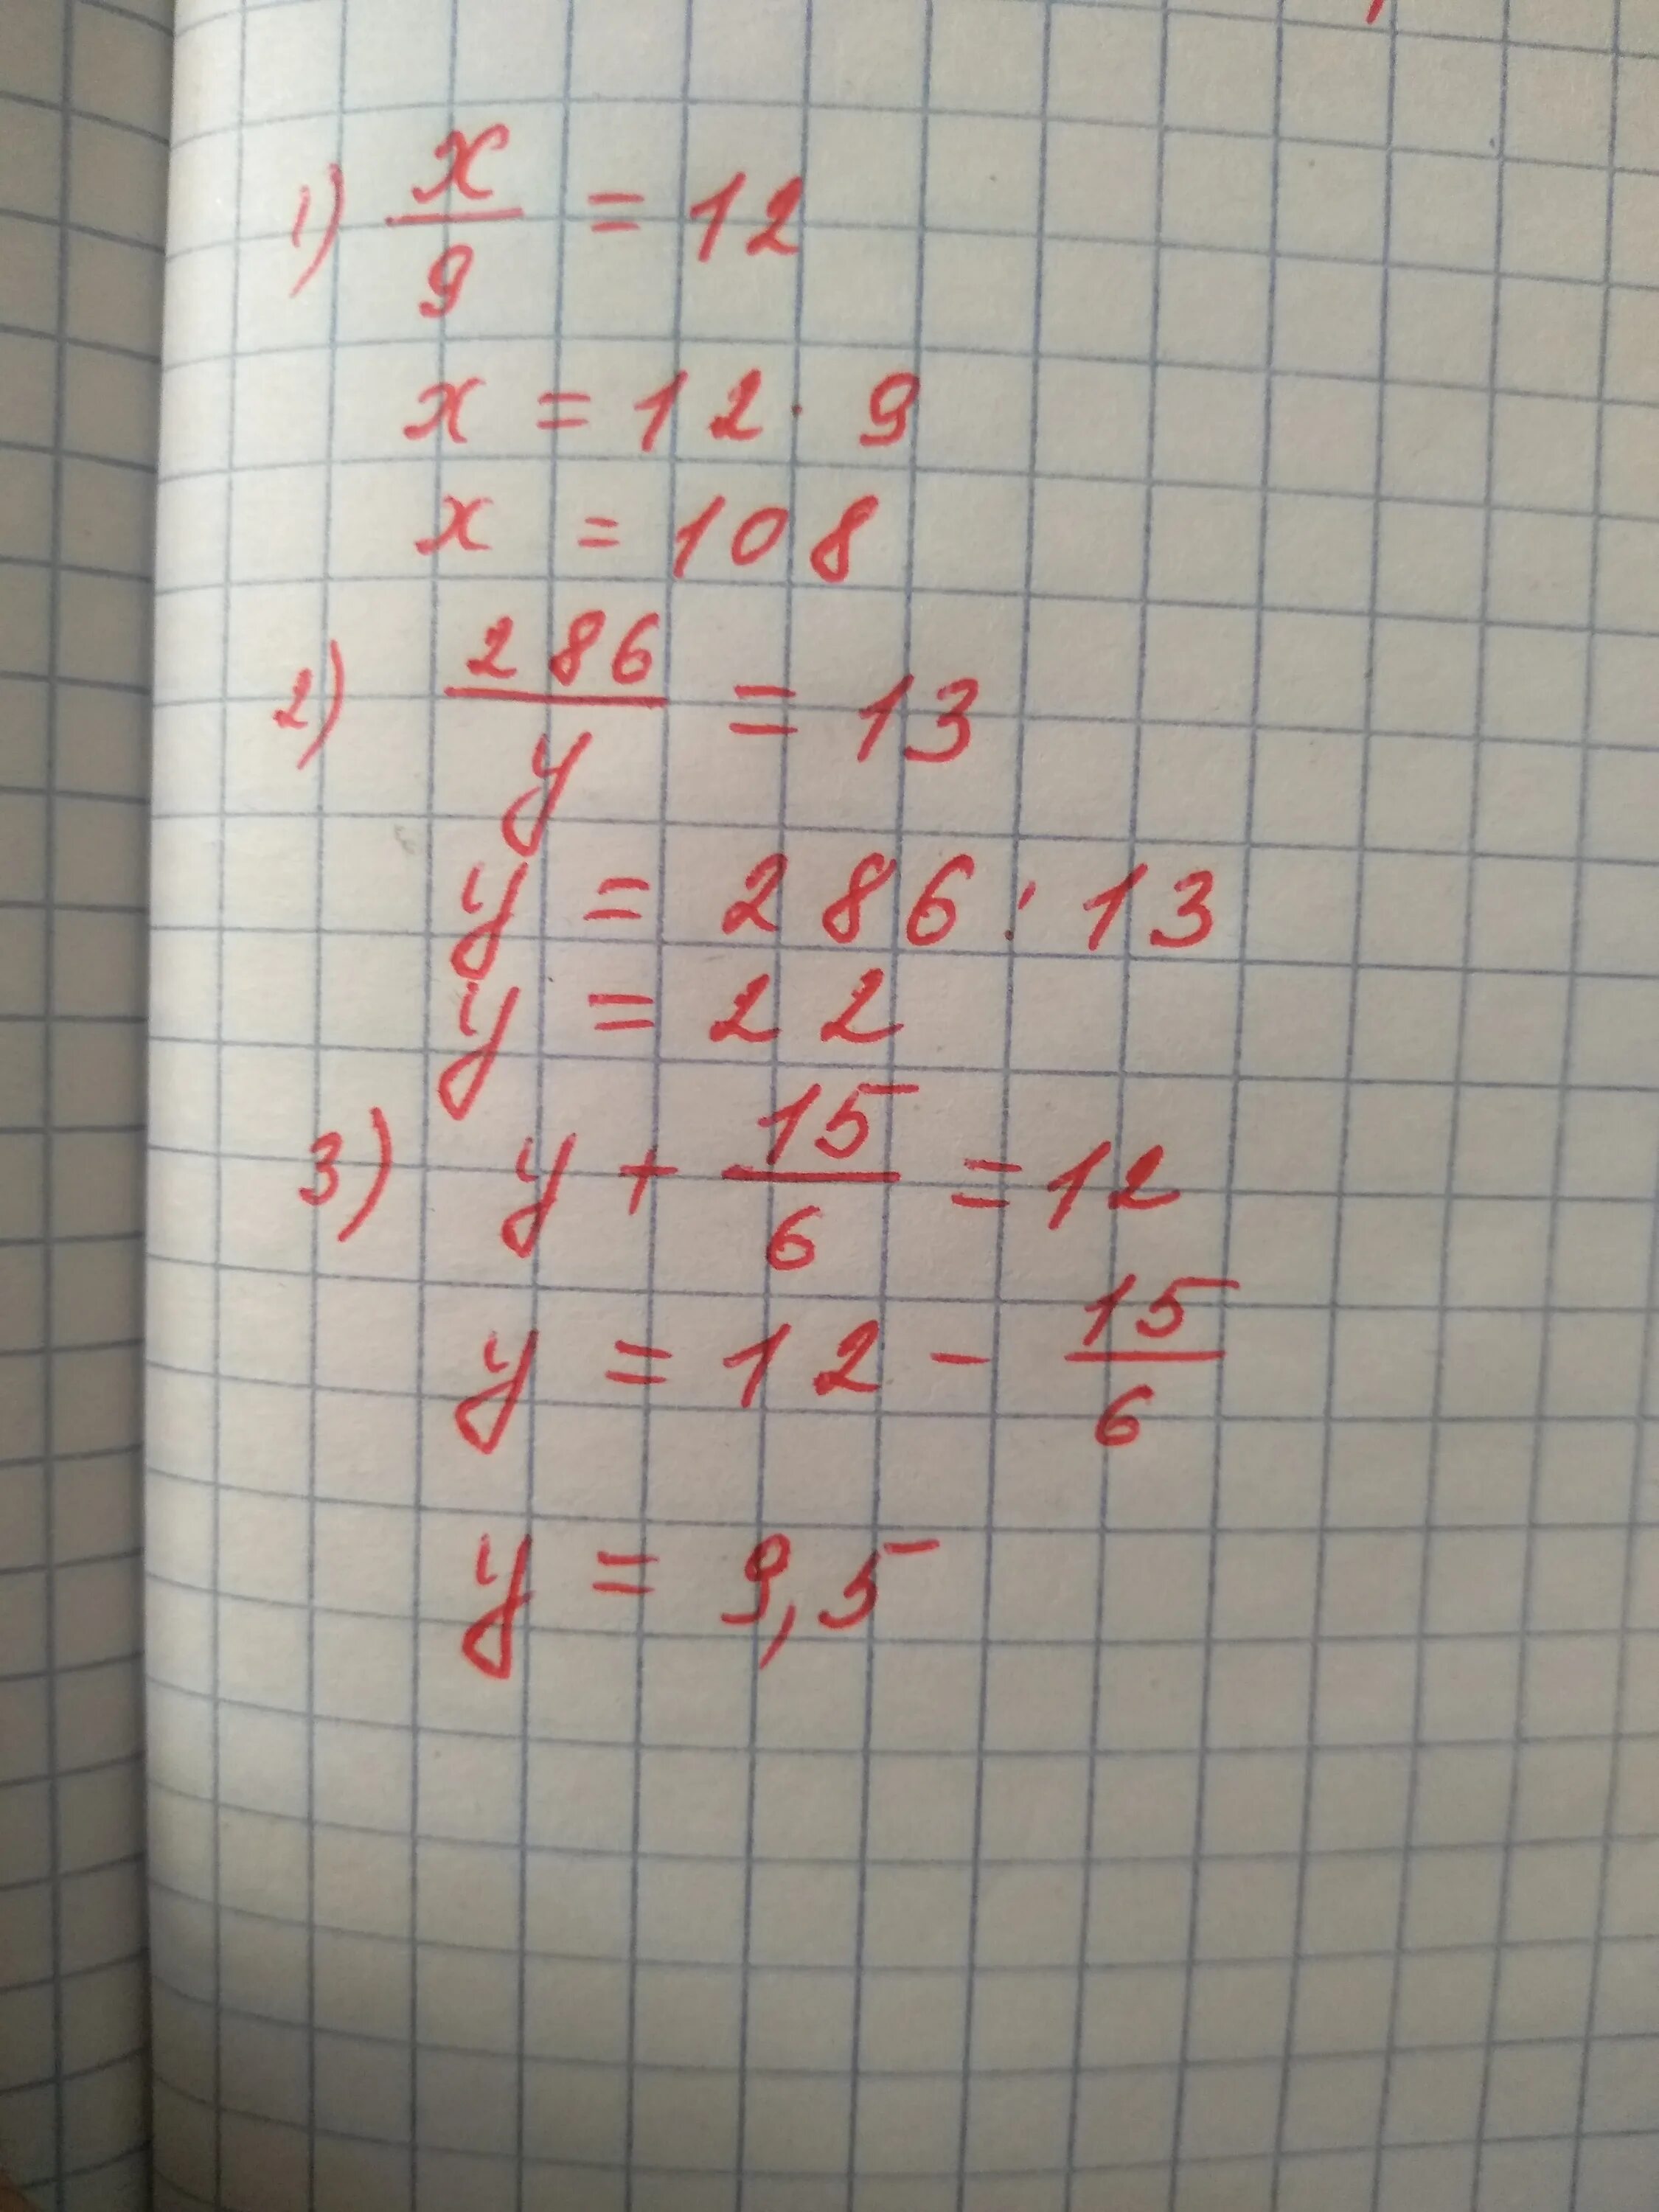 1) x/9 = 12
x = 12 · 9
x = 108
2) 286/y = 13
y = 286 : 13
y = 22
3) y + 15/6 = 12
y = 12 - 15/6
y = 9,5